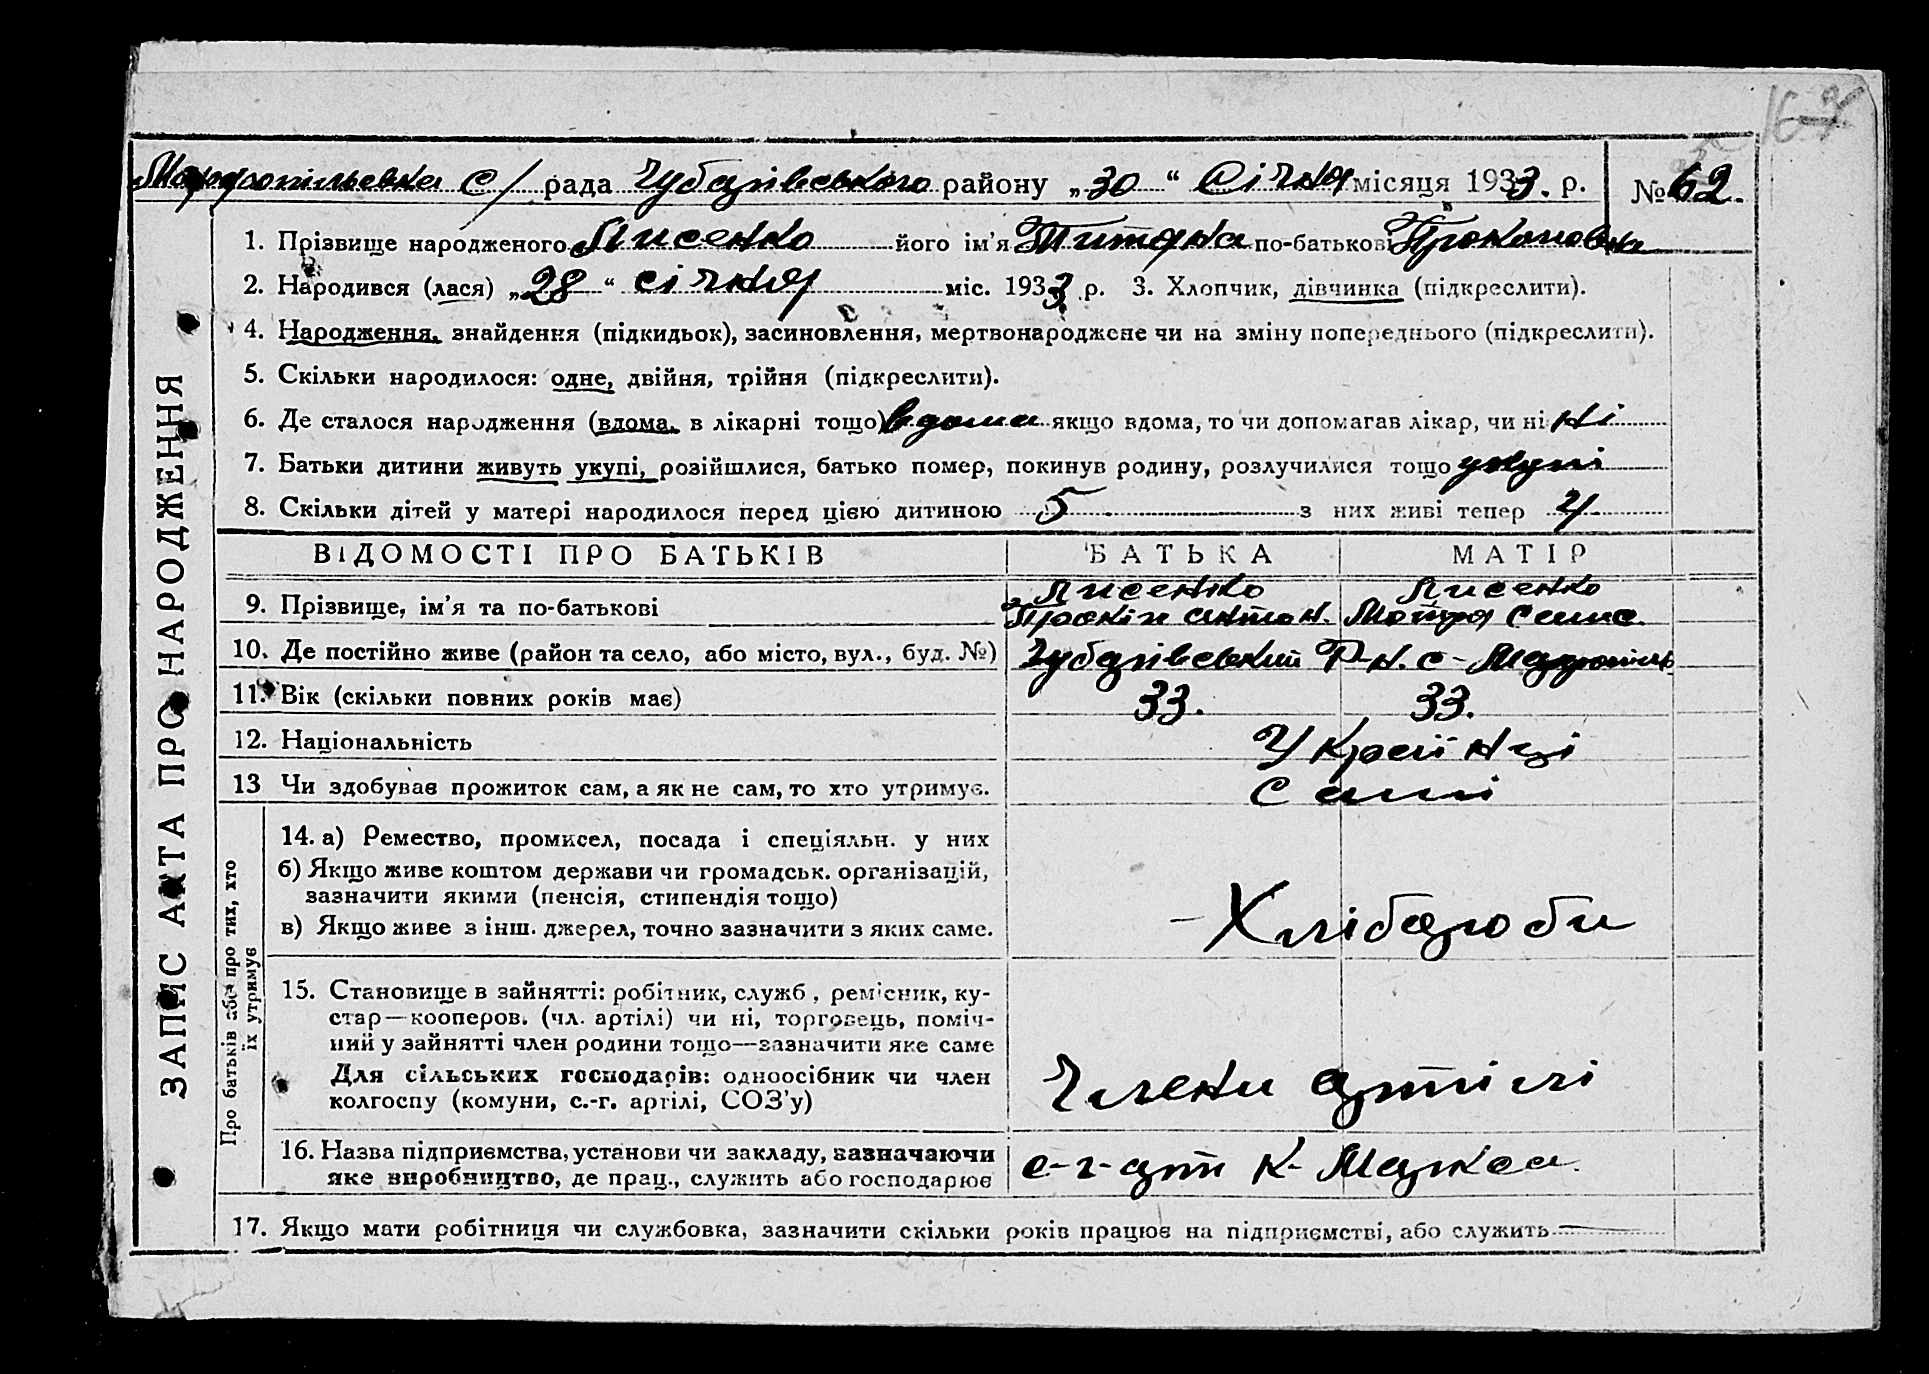 163
Марфопільська с/рада Чубарівського району „30“ Січня місяця 1933. р. № 62.
1. Прізвище народженого Лисенко його ім'я Титяна по-батькові Прокоповна
2. Народився (лася) „28“ січня міс. 1933 р. 3. Хлопчик, дівчинка (підкреслити).
4. Народження, знайдення (підкидьок), засиновлення, мертвонароджене чи на зміну попереднього (підкреслити).
5. Скільки народилося: одне, двійня, трійня (підкреслити).
6. Де сталося народження (вдома, в лікарні тощо) вдома якщо вдома, то чи допомагав лікар, чи ні ні
7. Батьки дитини живуть укупі, розійшлися, батько помер, покинув родину, розлучилися тощо укупі
8. Скільки дітей у матері народилося перед цією дитиною 5 з них живі тепер 4
ВІДОМОСТІ ПРО БАТЬКІВ БАТЬКА МАТІР
9. Прізвище, ім'я та по-батькові Лисенко Прокіп Антон. Лисенко Мотря Саме.
10. Де постійно живе (район та село, або місто, вул., буд. №) Чубарівський Р-н. с-Марфопіль
11. Вік (скільки повних років має) 33. 33.
12. Національність Українці
13 Чи здобував прожиток сам, а як не сам, то хто утримує. Самі
14. а) Ремество, промисел, посада і спеціяльн. у них
б) Якщо живе коштом держави чи громадськ. організацій,
зазначити якими (пенсія, стипендія тощо)
в) Якщо живе з інш. джерел, точно зазначити з яких саме.
- Хлібароби
15. Становище в зайнятті: робітник, служб, ремісник, ку-
стар—кооперов. (чл. артілі) чи ні, торговець, поміч-
ний у зайнятті член родини тощо—зазначити яке саме
Для сільських господарів: одноосібник чи член
колгоспу (комуни, с.-г. артілі, СОЗ'у)
Члени артілі
16. Назва підприємства, установи чи закладу, зазначаючи
яке виробництво, де прац., служить або господарює
с-г-арт К-Маркса.
17. Якщо мати робітниця чи службовка, зазначити скільки років працює на підприємстві, або служить
ЗАПИС АКТА ПРО НАРОДЖЕННЯ
Про батьків або про тих, хто
їх утримує